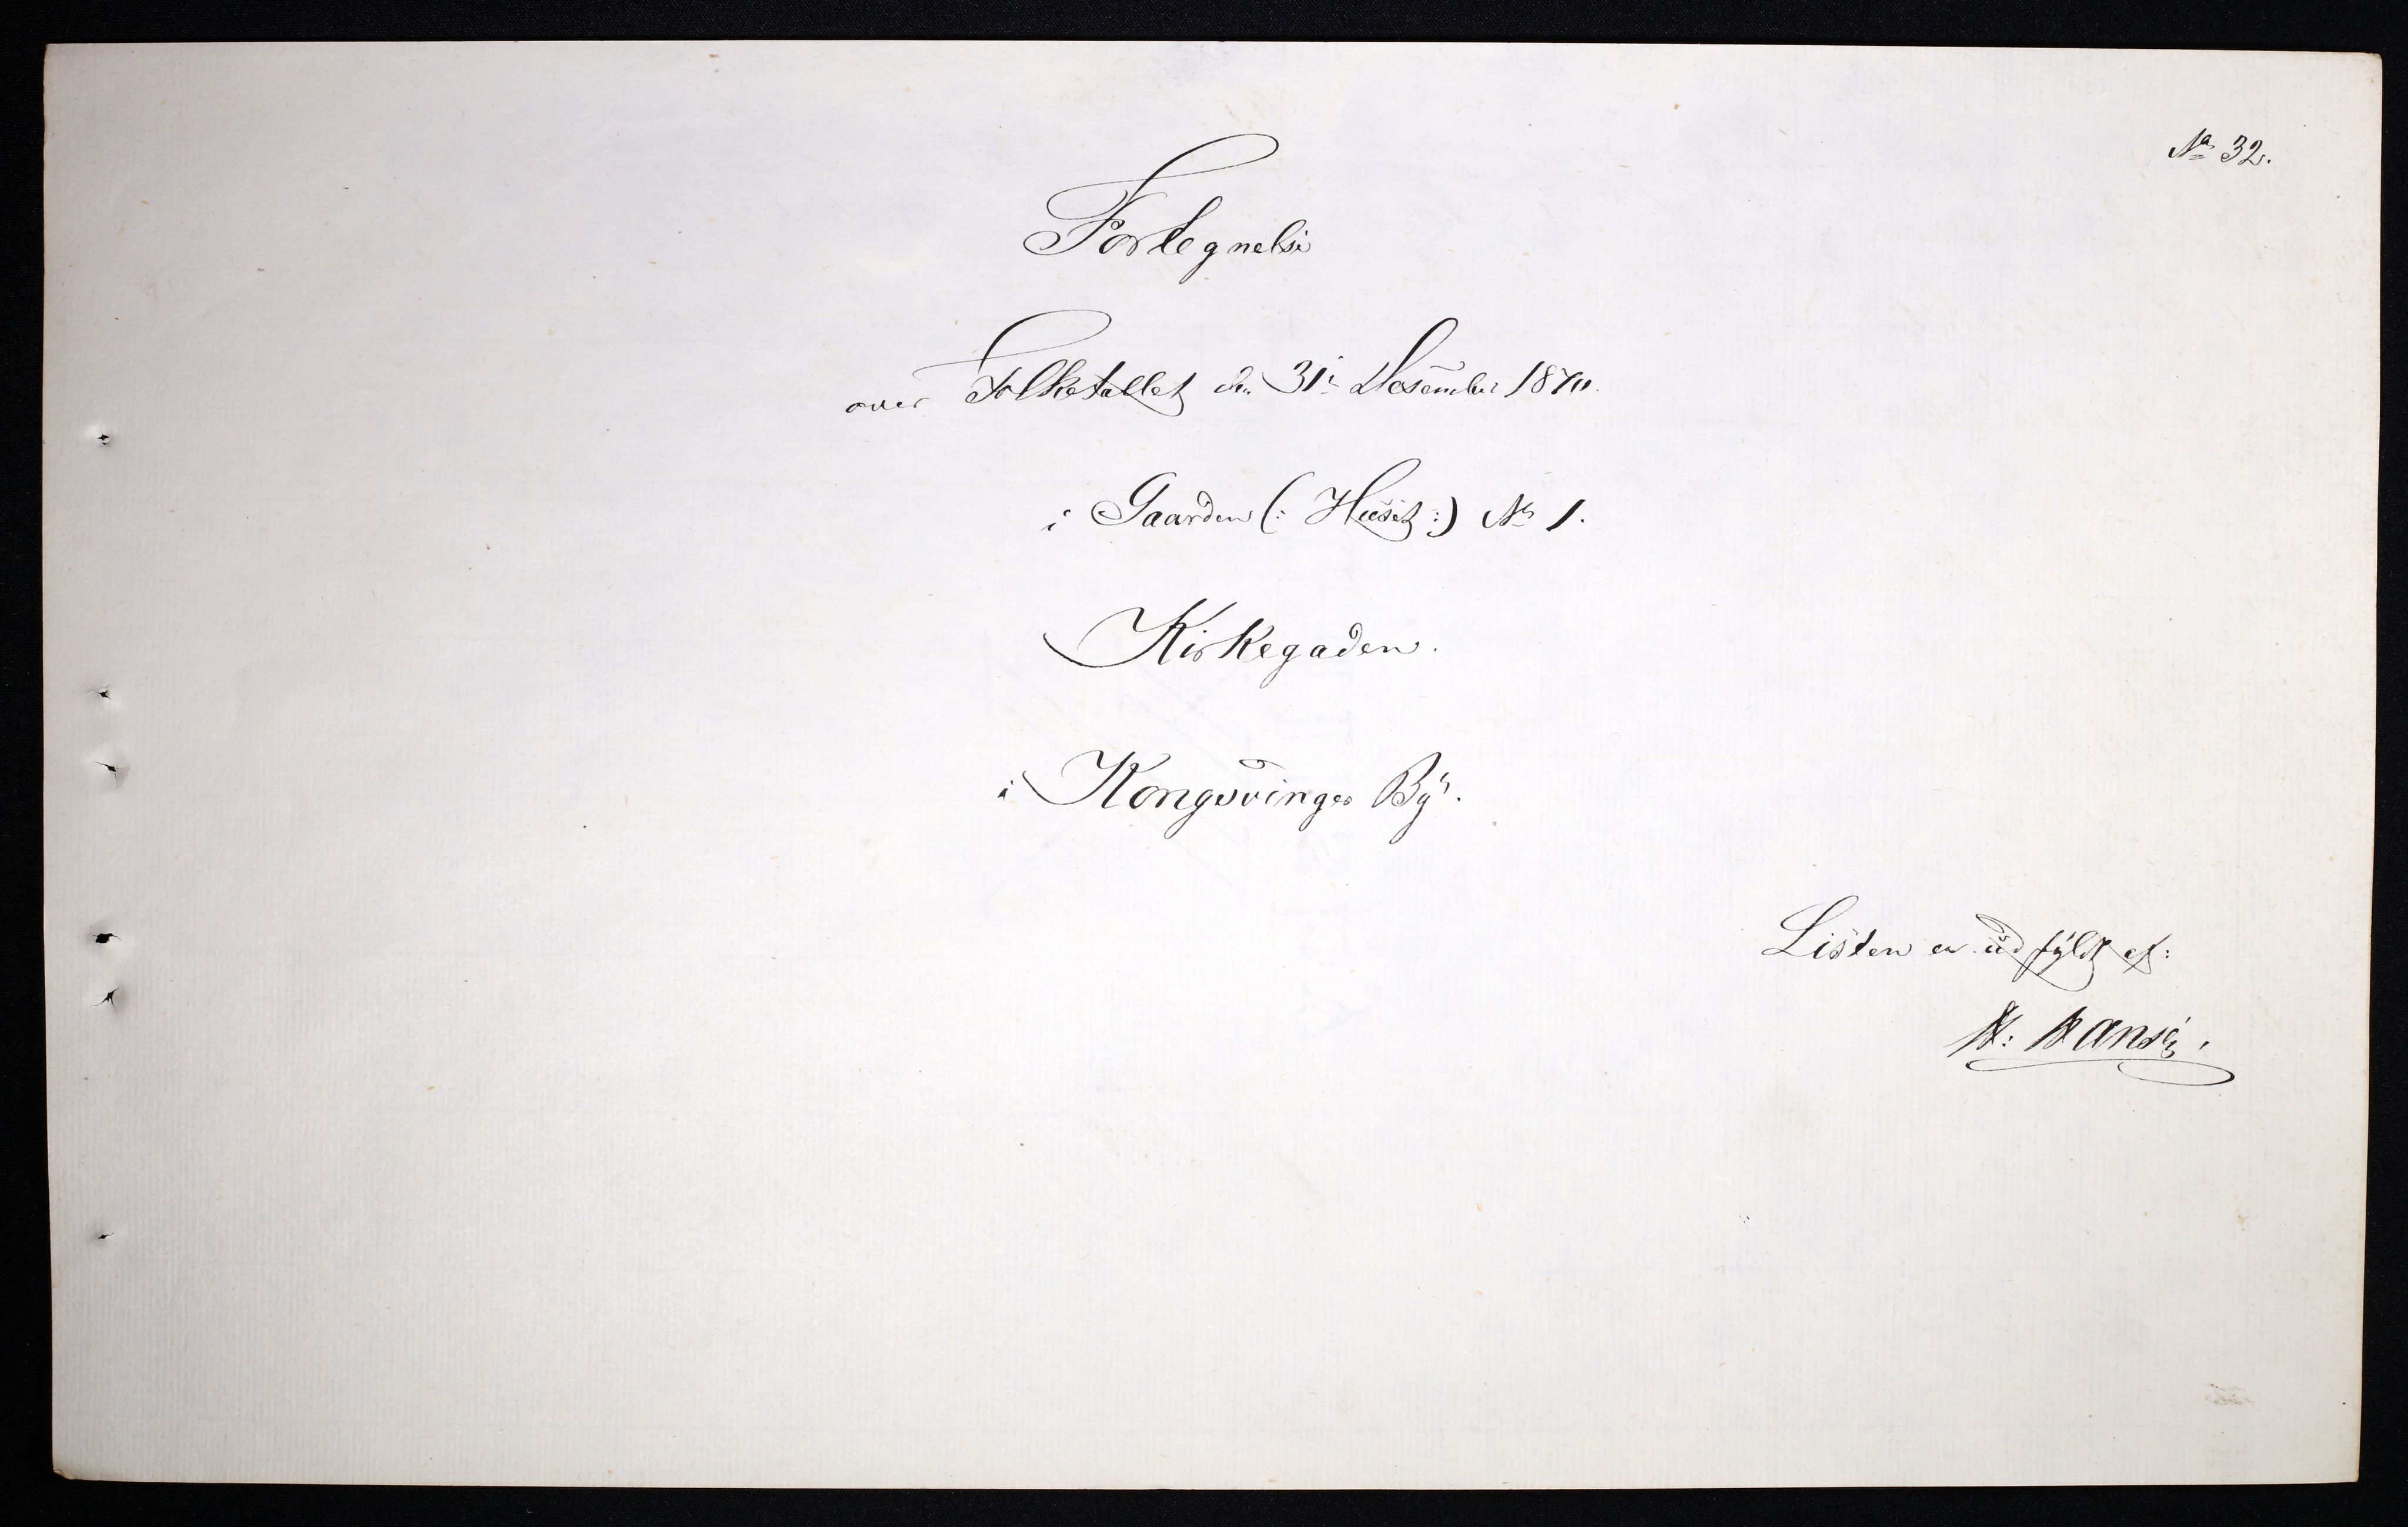 No 32.
Fortegnelse
over Folketallet den 31te Desember 1870.
i Gaarden (: Huset :) No 1.
Kirkegaden.
i Kongsvinger By.
Listen er udfyldt af:
H: Hansen.